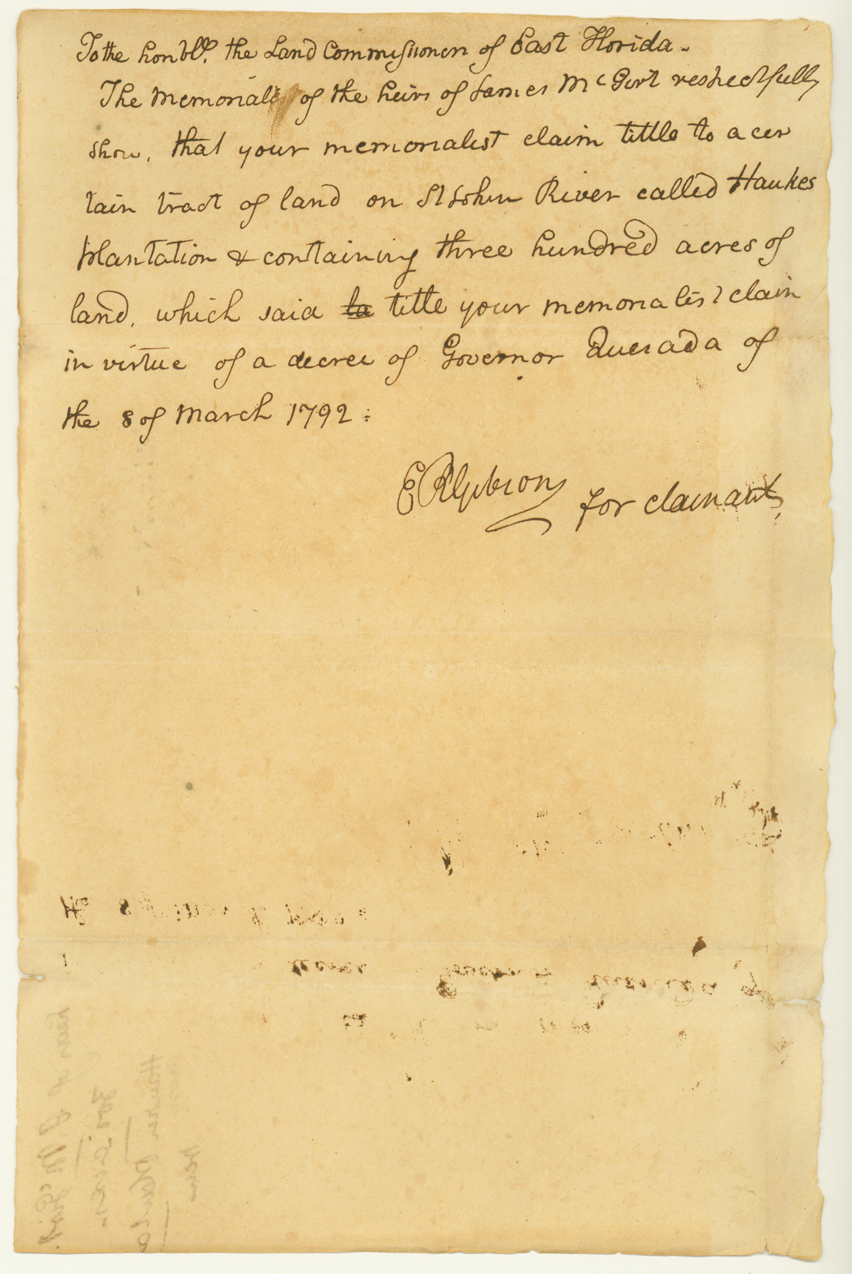 To the honble. the Land Commissioners of East Florida -
The Memorial of the heirs of James McGirt respectfully
show, that your memorialist claim tittle to a cer
tain tract of land on St John River called Haukes
plantation & containing three hundred acres of
land, which said la title your memorialist claim
in virtue of a decree of Governor Quesada of
the 8 of March 1792:
E R Gibson for claimants
heirs of J McGirt
300 acres
Haukes Planta